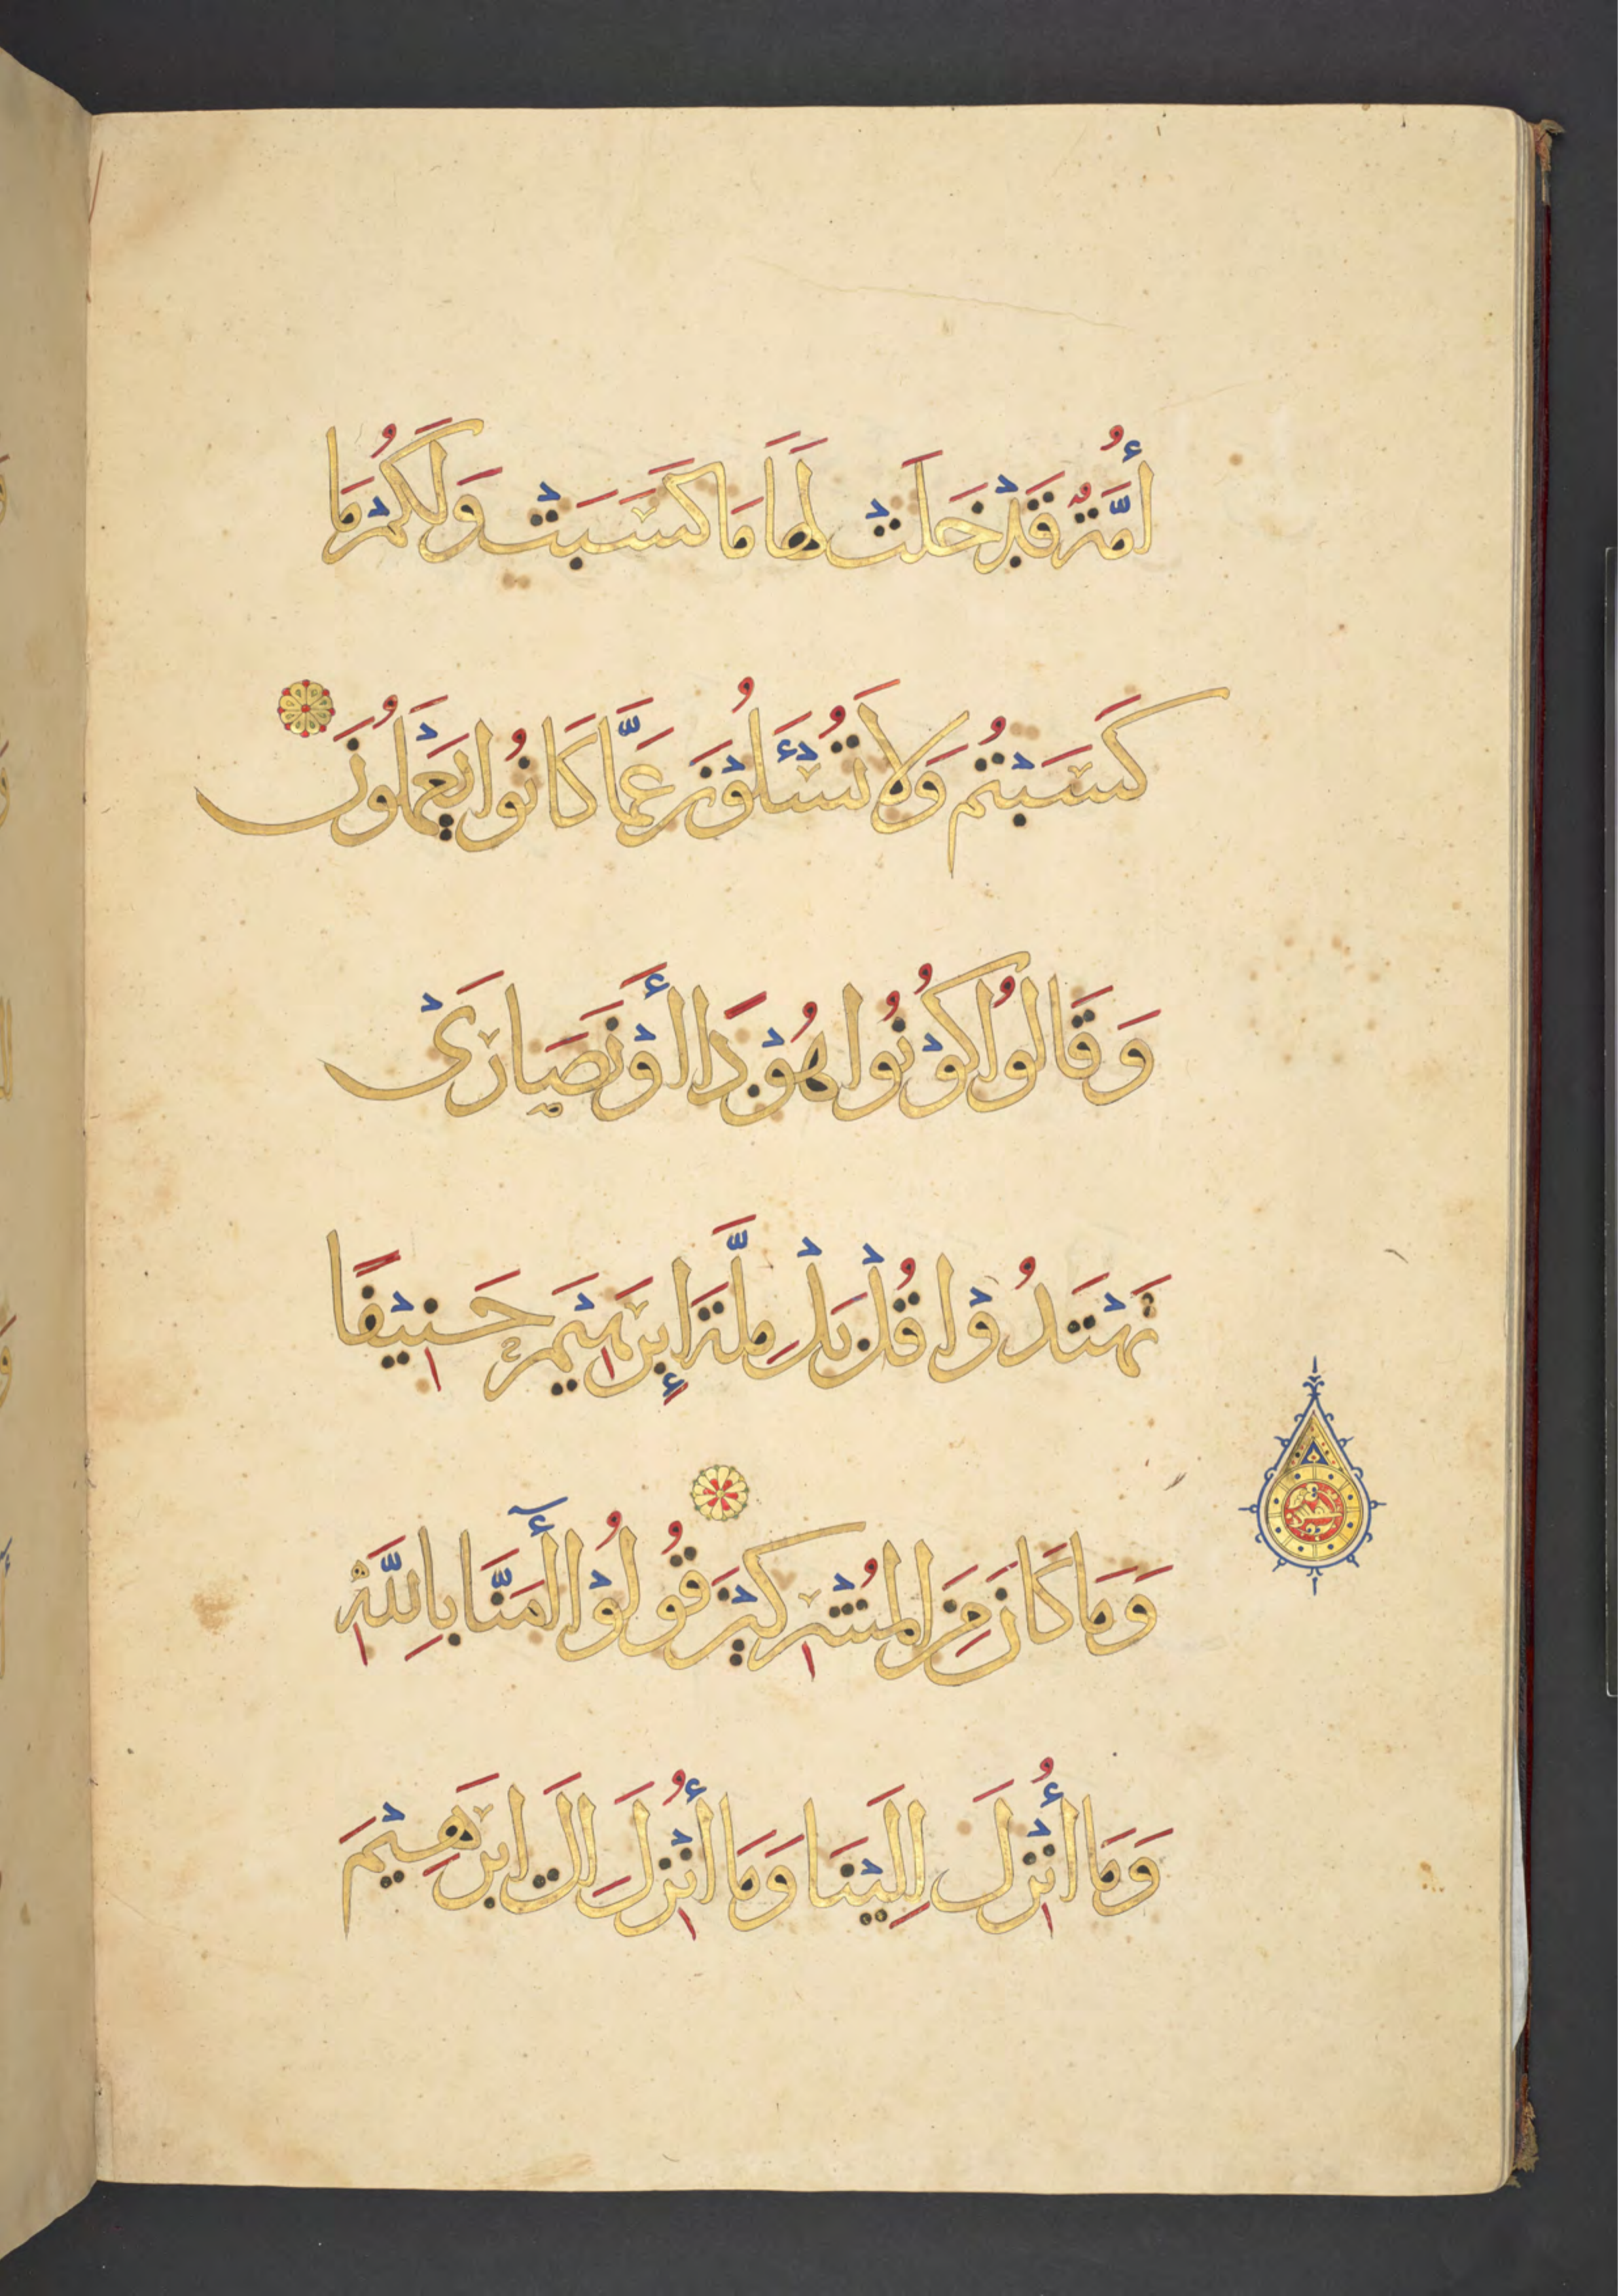 أُمَّةٌ قَدْ خَلَتْ لَهَا مَا كَسَبَتْ وَلَكُمْ مَا
كَسَبْتُمْ وَلَا تُسْئَلُوْنَ عَمَّا كَانُوا يَعْمَلُونَ
وَقَالُوا كُوْنُوا هُوْدًا أَوْ نَصَارَىْ
تَهْتَدُوْا قُلْ بَلْ مِلَّةَ إِبْرَهِيْمَ حَنِيْفًا
وَمَا كَانَ مِنَ الْمُشْرِكِيْنَ قُولُوْا آمَنَّا بِاللَّهِ
وَمَا أُنْزِلَ إِلَيْنَا وَمَا أُنْزِلَ إِلَى إِبْرَهِيْمَ